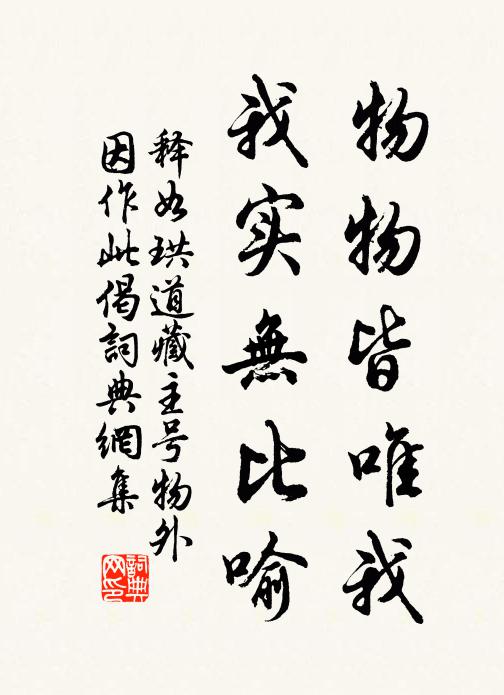 物物皆唯我
我实無比喻
释如珙道藏主号物外
因作此偈詞典網集
詞典网印